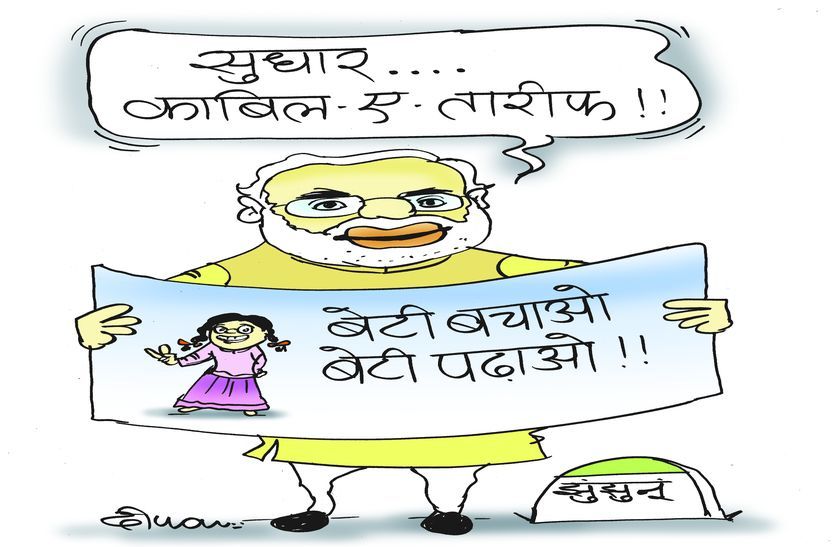 सुधार....
काबिल-ए-तारीफ!!
बेटी बचाओ
बेटी पढ़ाओ!!
झुंझुनूं